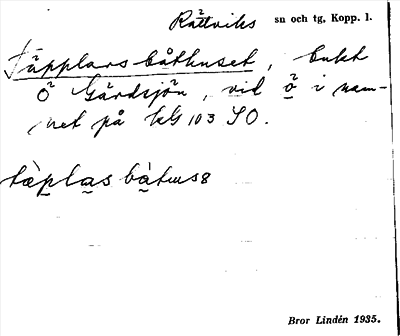 Rättviks sn och tg, Kopp. l.
Täpplars båthuset, bukt
Ö Gärdsjön, vid ö i nam-
net på kG 103 SO.
tæplas bàtus8
Bror Lindén 1935.